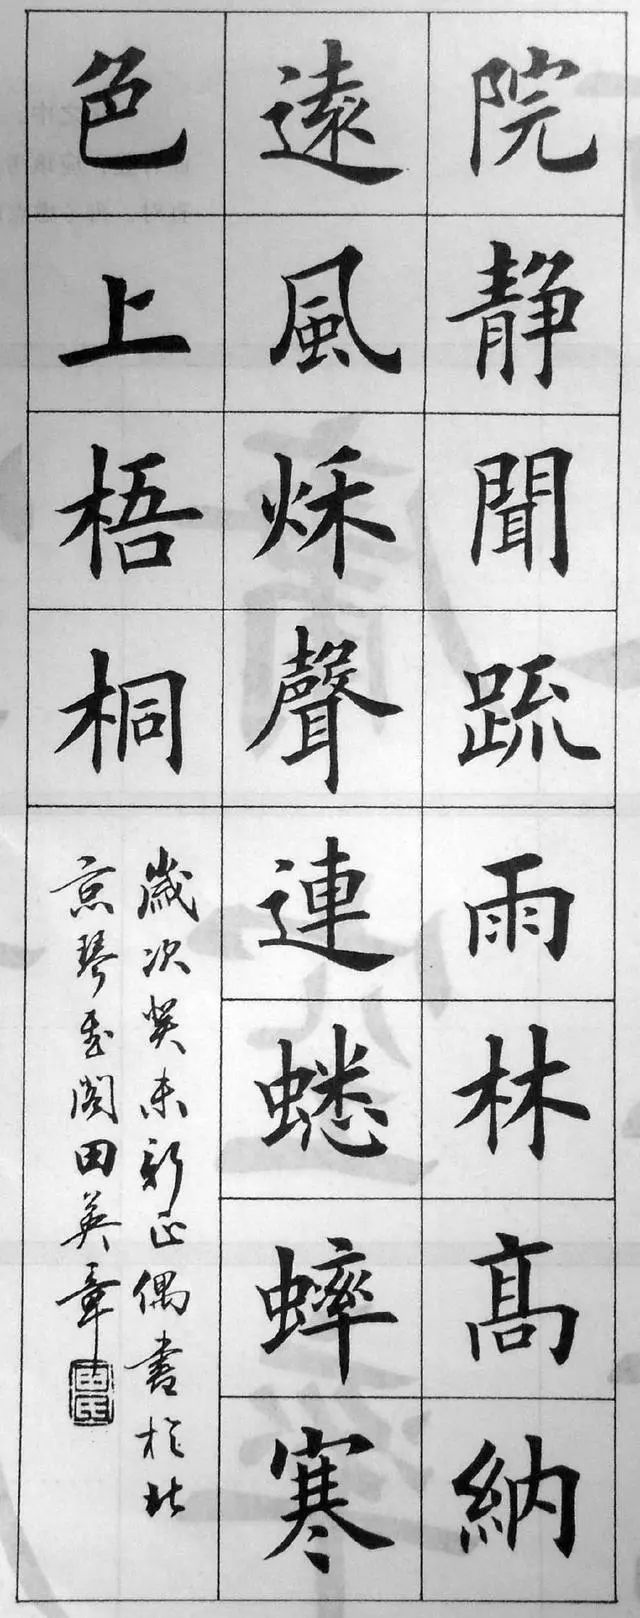 院静聞䟽雨林髙納
遠風秌聲連蟋蟀寒
色上梧桐
歲次癸未新正偶書於北
京琴閣田英章